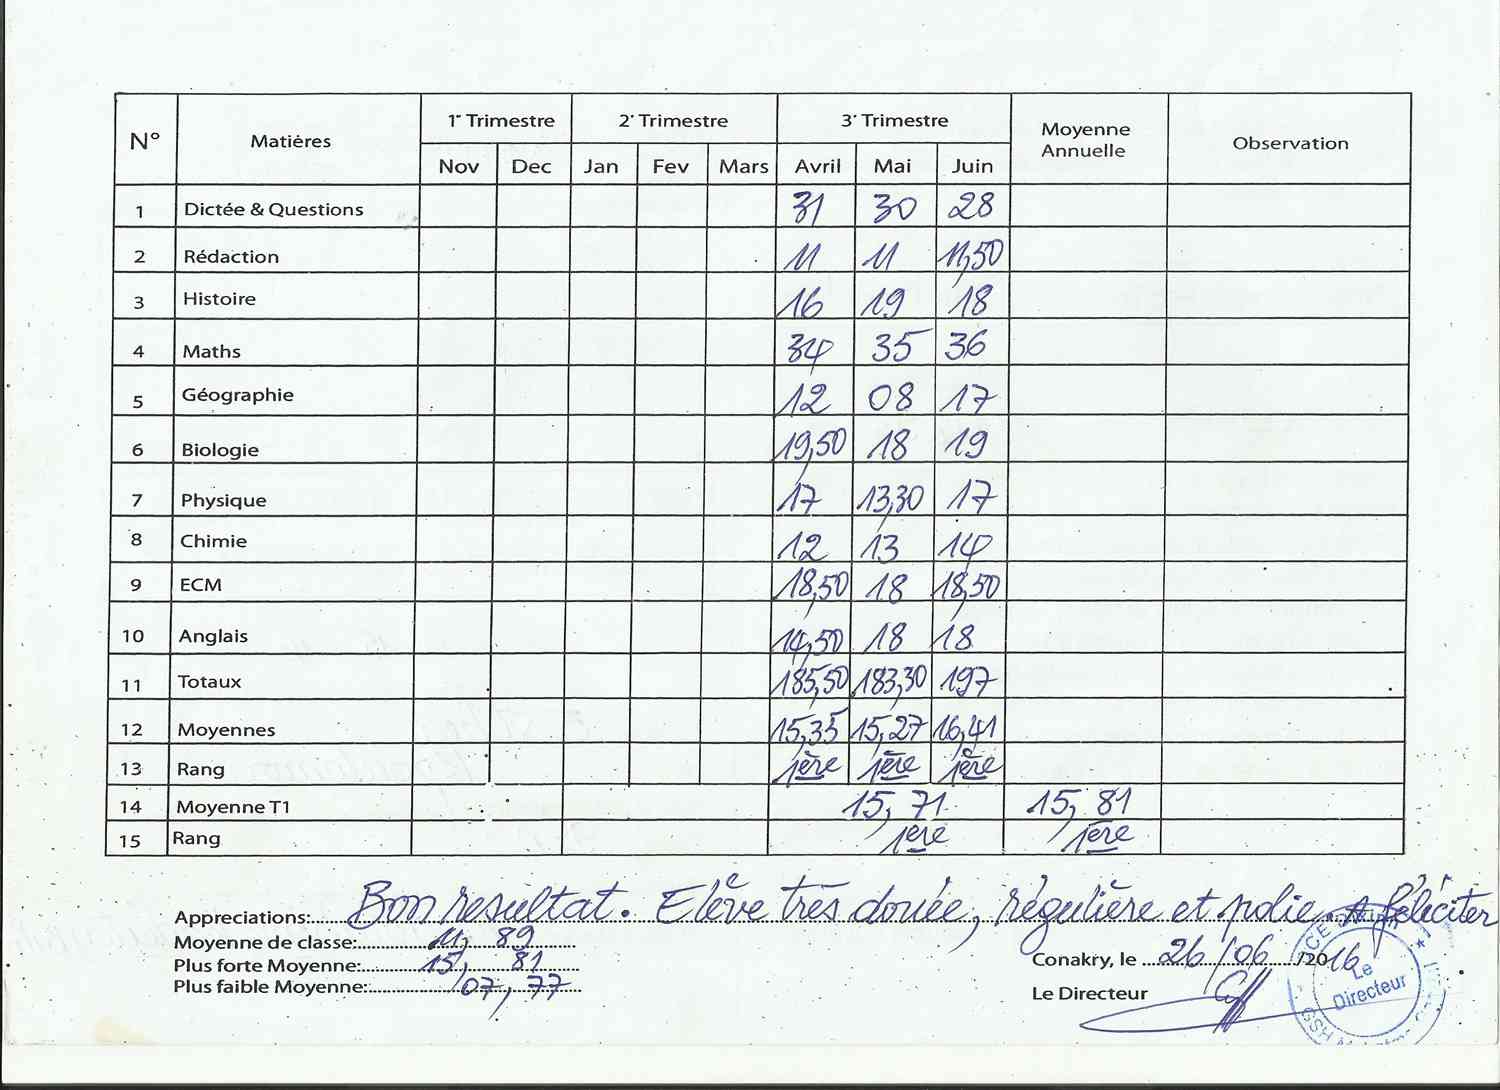 N° Matières 1er Trimestre 2e Trimestre 3e Trimestre Moyenne Annuelle Observation
Nov Dec Jan Fev Mars Avril Mai Juin
1 Dictée & Questions 31 30 28
2 Rédaction 11 11 11,50
3 Histoire 16 19 18
4 Maths 34 35 36
5 Géographie 12 08 17
6 Biologie 19,50 18 19
7 Physique 17 13,30 17
8 Chimie 12 13 14
9 ECM 18,50 18 18,50
10 Anglais 14,50 18 18
11 Totaux 185,50 183,30 197
12 Moyennes 15,35 15,27 16,41
13 Rang 1ère 1ère 1ère
14 Moyenne T1 15,71 15,81
15 Rang 1ère 1ère
Appreciations: Bon resultat. Elève très douée, régulière et polie. A féliciter
Moyenne de classe: 11,89
Plus forte Moyenne: 15,81
Plus faible Moyenne: 07,77
Conakry, le 26/06/2016
Le Directeur
Le
Directeur